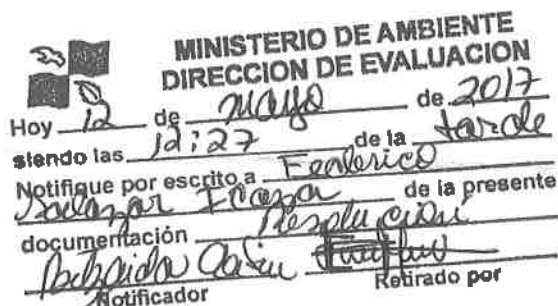 MINISTERIO DE AMBIENTE
DIRECCION DE EVALUACION
Hoy 12 de mayo de 2017
siendo las 12:27 de la tarde
Notifique por escrito a Federico
Salazar Icaza de la presente
documentación Resolución
Notificador Retirado por